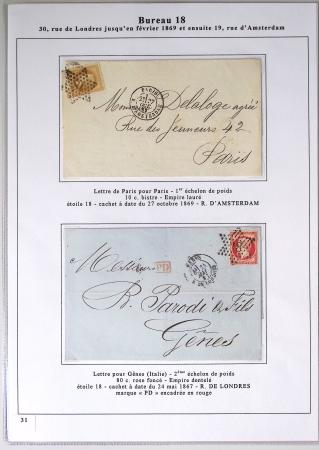 Bureau 18
30, rue de Londres jusqu'en février 1869 et ensuite 19, rue d'Amsterdam
Monsieur Delaloge agréé
Rue des Jeuneurs 42
Paris
Lettre de Paris pour Paris - 1er échelon de poids
10 c. bistre - Empire lauré
étoile 18 - cachet à date du 27 octobre 1869 - R. D'AMSTERDAM
PARIS
Messieurs
PD
B. Parodi & Fils
Gênes
Lettre pour Gênes (Italie) - 2ème échelon de poids
80 c. rose foncé - Empire dentelé
étoile 18 - cachet à date du 24 mai 1867 - R. DE LONDRES
marque « PD » encadrée en rouge
31